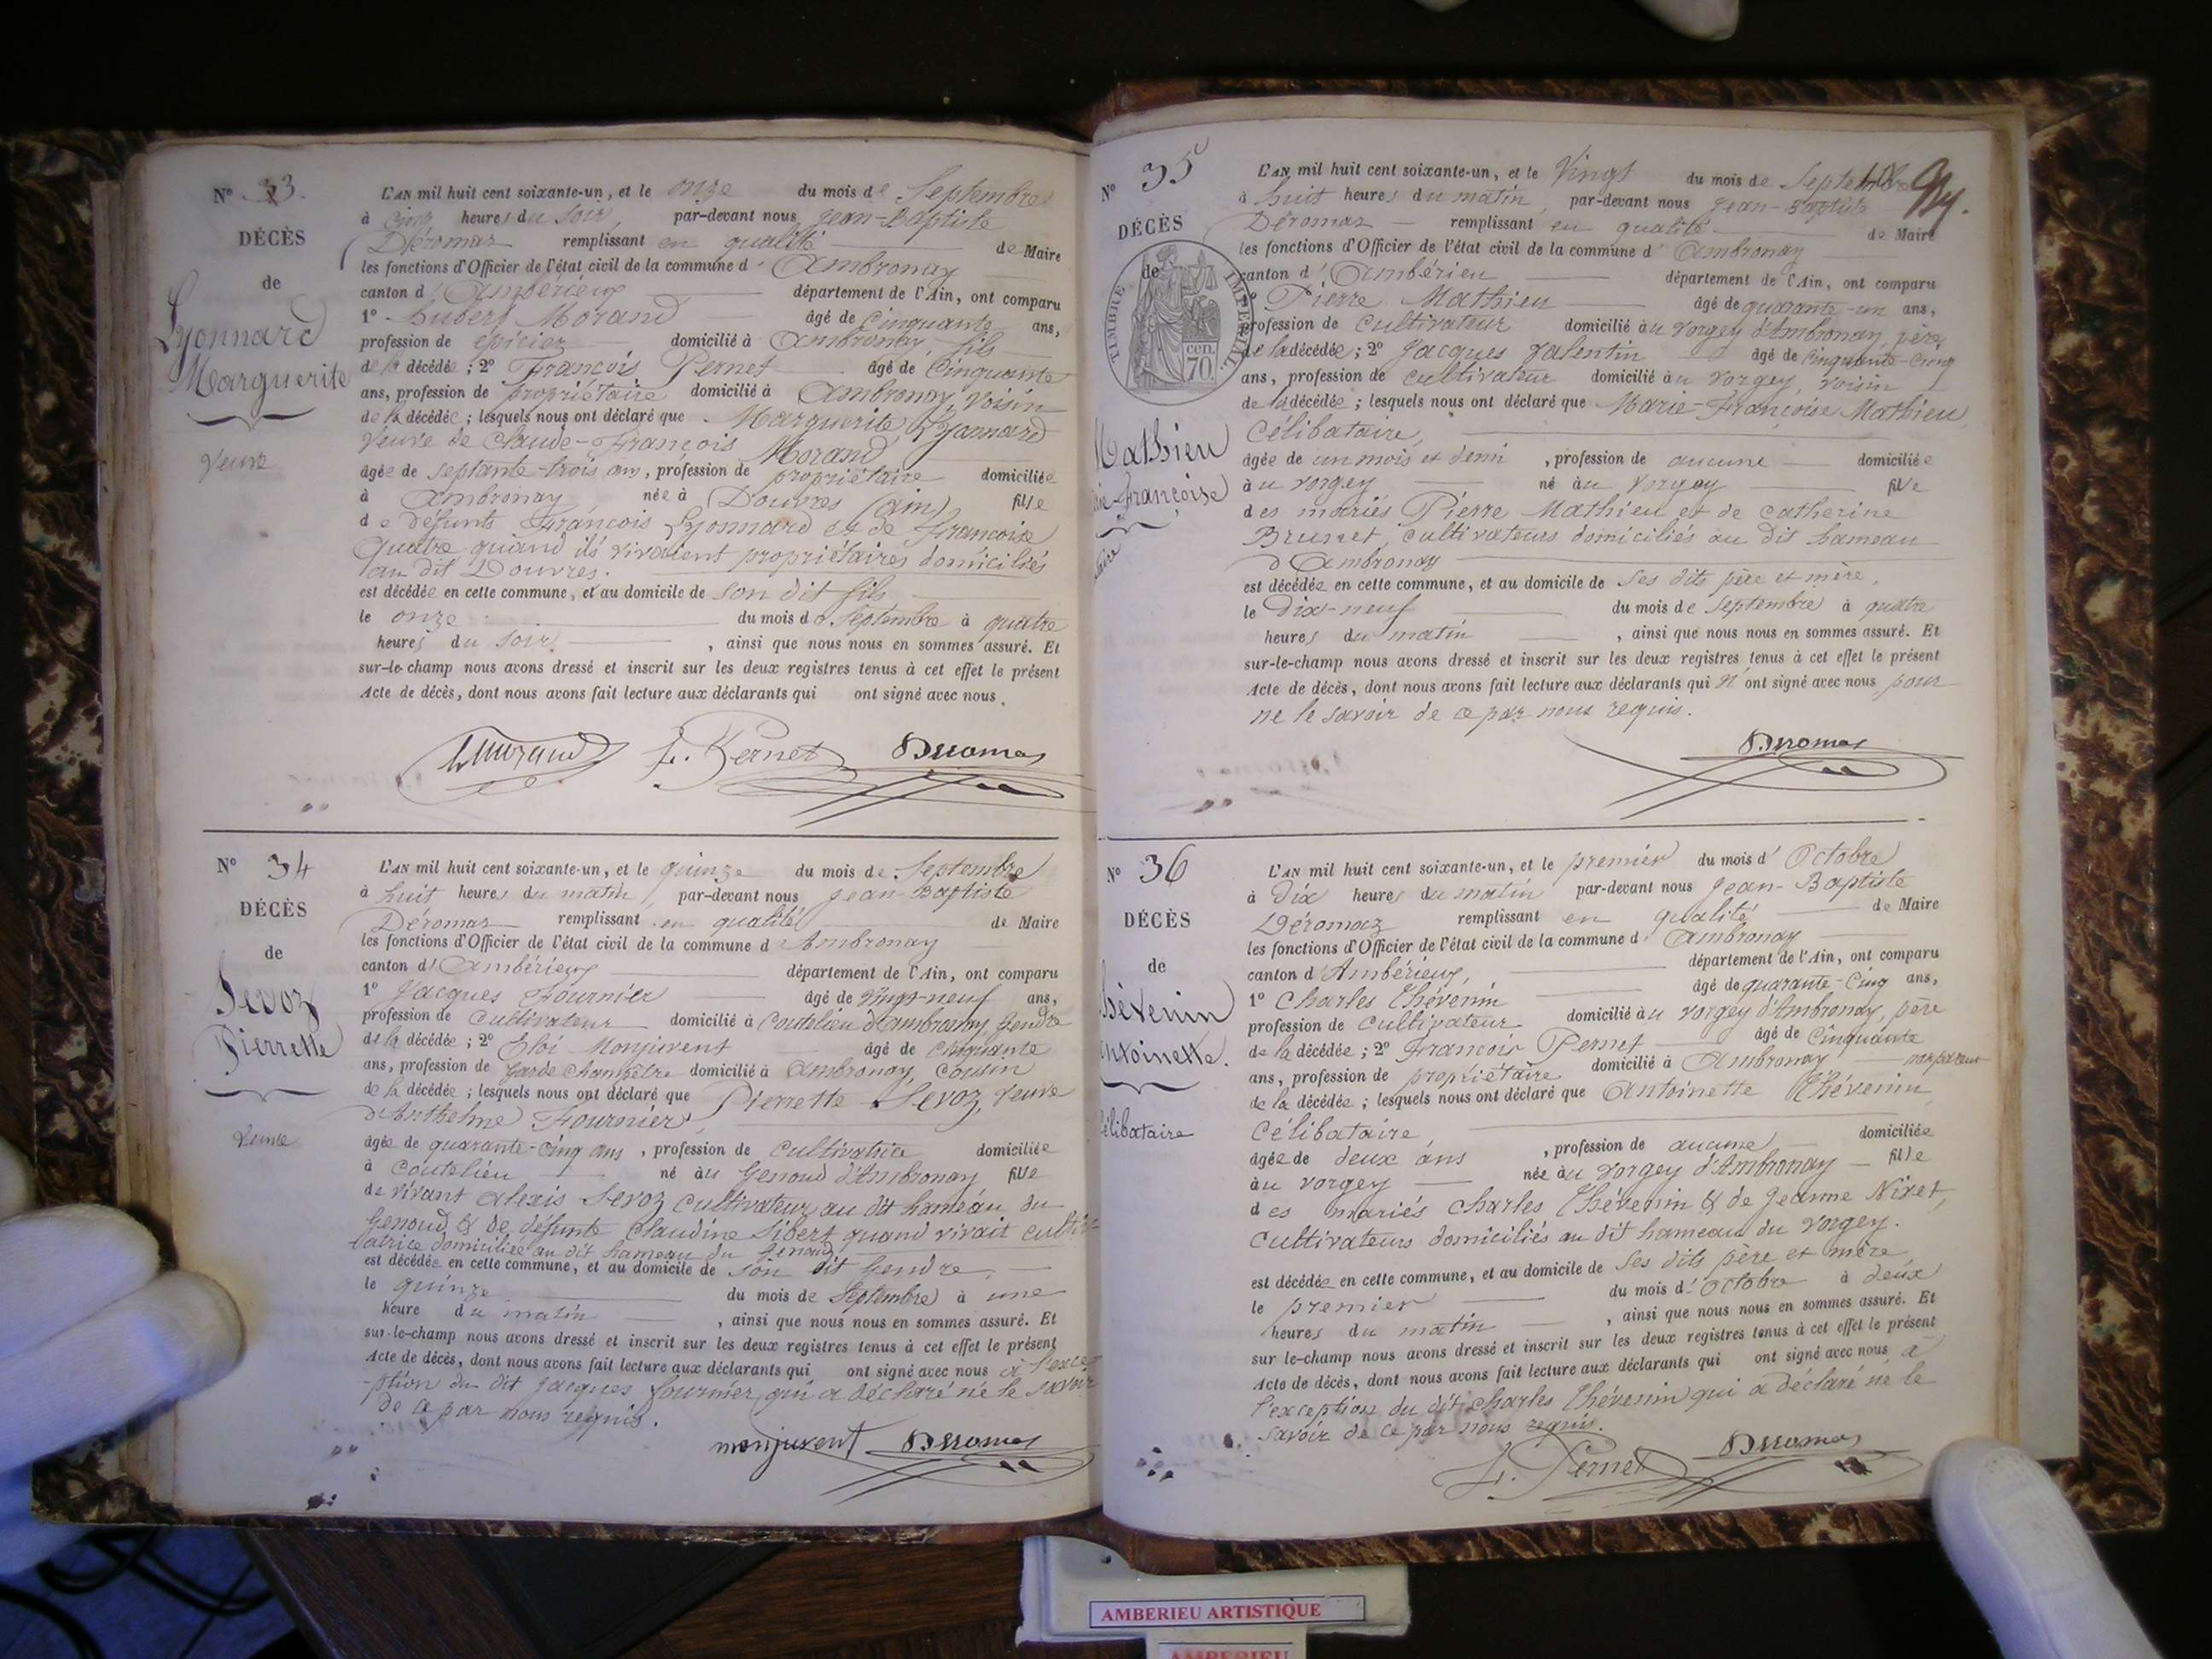 N° 33.
DÉCÈS
de
Lyonnard
Marguerite
Veuve
L'AN mil huit cent soixante-un, et le onze du mois de Septembre
à cinq heures du soir, par-devant nous Jean-Baptiste
Déromas remplissant en qualité de Maire
les fonctions d'Officier de l'état civil de la commune d'Ambronay
canton d'Ambérieux département de l'Ain, ont comparu
1° hubert Morand âgé de Cinquante ans,
profession de épicier domicilié à Ambronay fils
de la décédée ; 2° François Pernet âgé de Cinquante
ans, profession de propriétaire domicilié à Ambronay, Voisin
de la décédée ; lesquels nous ont déclaré que Marguerite Lyonnard
Veuve de Claude-François Morand
âgée de septante-trois ans, profession de propriétaire domiciliée
à Ambronay née à Douvres (ain) fille
de défunts François Lyonnard et de Françoise
Quatre quand ils vivaient propriétaires domiciliés
au dit Douvres.
est décédée en cette commune, et au domicile de son dit fils
le onze du mois de Septembre à quatre
heures du soir, ainsi que nous nous en sommes assuré. Et
sur-le-champ nous avons dressé et inscrit sur les deux registres tenus à cet effet le présent
Acte de décès, dont nous avons fait lecture aux déclarants qui ont signé avec nous.
hmorand F. Pernet Deromas
N° 34
DÉCÈS
de
Sevoz
Pierrette
Veuve
L'AN mil huit cent soixante-un, et le quinze du mois de Septembre
à huit heures du matin, par-devant nous Jean-Baptiste
Déromas remplissant en qualité de Maire
les fonctions d'Officier de l'état civil de la commune d Ambronay
canton d'Ambérieux département de l'Ain, ont comparu
1° Jacques Fournier âgé de Vingt-neuf ans,
profession de Cultivateur domicilié à Coutelieu d'Ambronay, Gendre
de la décédée ; 2° Eloi Monjuvent âgé de cinquante
ans, profession de Garde Champêtre domicilié à Ambronay, Cousin
de la décédée ; lesquels nous ont déclaré que Pierrette Sevoz, Veuve
d'Anthelme Fournier,
âgée de quarante-cinq ans, profession de Cultivatrice domiciliée
à Coutelieu né au Genoud d'Ambronay, fille
de vivant Alexis Sevoz Cultivateur au dit hameau du
Genoud, & de défunte Claudine Sibert quand vivait culti-
vatrice domiciliée au dit hameau du Genoud
est décédée en cette commune, et au domicile de son dit Gendre,
le quinze du mois de Septembre à une
heure du matin, ainsi que nous nous en sommes assuré. Et
sur-le-champ nous avons dressé et inscrit sur les deux registres tenus à cet effet le présent
Acte de décès, dont nous avons fait lecture aux déclarants qui ont signé avec nous à l'exce
-ption du dit Jacques fournier, qui a déclaré ne le savoir
de ce par nous requis.
monjuvent Deromas
N° 35
DÉCÈS
de
TIMBRE IMPÉRIAL
70 cen.
Mathieu
Françoise
L'AN mil huit cent soixante-un, et le Vingt du mois de Septembre
à huit heures du matin, par-devant nous Jean-Baptiste
Déromas remplissant en qualité de Maire
les fonctions d'Officier de l'état civil de la commune d'Ambronay
canton d'Ambérieu département de l'Ain, ont comparu
Pierre Mathieu âgé de quarante-un ans,
profession de Cultivateur domicilié au Vorgey d'Ambronay, père
de la décédée ; 2° Jacques Valentin âgé de Cinquante-Cinq
ans, profession de Cultivateur domicilié au Vorgey, voisin
de la décédée ; lesquels nous ont déclaré que Marie-Françoise Mathieu
Célibataire,
âgée de un mois et demi, profession de aucune domiciliée
au Vorgey né au Vorgey fille
des mariés Pierre Mathieu et de Catherine
Brunet, Cultivateurs domiciliés au dit hameau
d'Ambronay
est décédée en cette commune, et au domicile de ses dits père et mère,
le dix-neuf du mois de Septembre à quatre
heures du matin, ainsi que nous nous en sommes assuré. Et
sur-le-champ nous avons dressé et inscrit sur les deux registres tenus à cet effet le présent
Acte de décès, dont nous avons fait lecture aux déclarants qui n'ont signé avec nous pour
ne le savoir de ce par nous requis.
Deromas
N° 36
DÉCÈS
de
hévenin
ntoinette.
élibataire
L'AN mil huit cent soixante-un, et le premier du mois d'Octobre
à dix heures du matin par-devant nous Jean-Baptiste
Déromaz remplissant en qualité de Maire
les fonctions d'Officier de l'état civil de la commune d'Ambronay
canton d'Ambérieux, département de l'Ain, ont comparu
1° Charles Thévenin âgé de quarante-Cinq ans,
profession de Cultivateur domicilié au Vorgey d'Ambronay, père
de la décédée ; 2° François Pernet âgé de Cinquante
ans, profession de propriétaire domicilié à Ambronay non parent
de la décédée ; lesquels nous ont déclaré que Antoinette Thévenin
Célibataire,
âgée de deux ans, profession de aucune domiciliée
au Vorgey née au Vorgey d'Ambronay fille
des mariés Charles Thévenin & de Jeanne Nivet,
Cultivateurs domiciliés au dit hameau du Vorgey.
est décédée en cette commune, et au domicile de ses dits père et mère
le premier du mois d'Octobre à deux
heures du matin, ainsi que nous nous en sommes assuré. Et
sur le-champ nous avons dressé et inscrit sur les deux registres tenus à cet effet le présent
Acte de décès, dont nous avons fait lecture aux déclarants qui ont signé avec nous à
l'exception du dit Charles Thévenin qui a déclaré ne le
savoir de ce par nous requis.
F. Pernet Deromas
AMBERIEU ARTISTIQUE
AMBERIEU